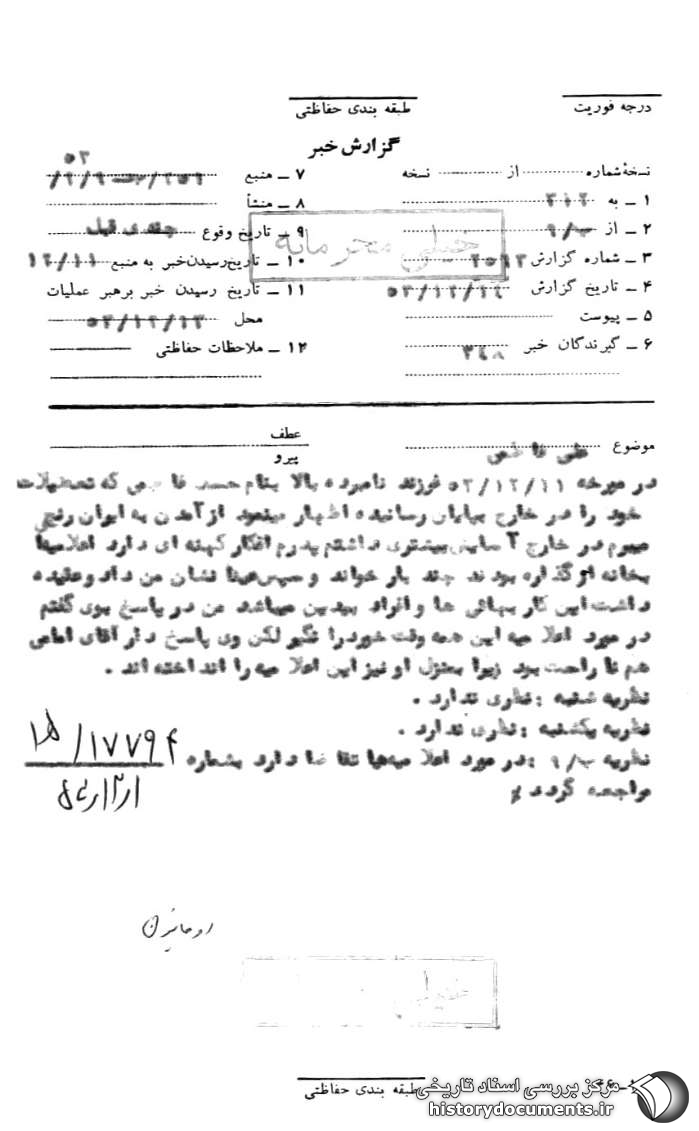 درجه فوریت
طبقه بندی حفاظتی
گزارش خبر
نسخهٔ شماره از نسخه
۱ ـ به ۳۱۲
۲ ـ از ۹/ﻫ
۳ ـ شماره گزارش
۴ ـ تاریخ گزارش
۵ ـ پیوست
۶ ـ گیرندگان خبر ۳۴۸
۷ ـ منبع
۸ ـ منشأ
۹ ـ تاریخ وقوع چندی قبل
۱۰ ـ تاریخ رسیدن خبر به منبع ۱۲/۱۱
۱۱ ـ تاریخ رسیدن خبر برهبر عملیات
محل ۵۳/۱۲/۱۳
۱۲ ـ ملاحظات حفاظتی
خیلی محرمانه
موضوع علی
عطف
پیرو
در مورخه ۵۳/۱۲/۱۱ فرزند نامبرده بالا بنام که تحصیلات
خود را در خارج بپایان رسانیده اظهار مینمود از آمدن به ایران رنج
میبرم در خارج آسایش بیشتری داشتم پدرم افکار کهنه ای دارد اعلامیها
بخانه ام گذاره بودند چند بار خواند و سپس عینا نشان من داد وعقیده
داشت این کار بهائی ها و افراد بیدین میباشد من در پاسخ بوی گفتم
در مورد اعلامیه این همه وقت خودرا نگیر لکن وی پاسخ داد آقای امامی
هم ناراحت بود زیرا بمنزل او نیز این اعلامیه را انداخته اند .
نظریه شنبه : نظری ندارد .
نظریه یکشنبه : نظری ندارد .
نظریه ۹/ﻫ : در مورد اعلامیه‌ها تقاضا دارد بشماره ۱۷۷۹۴/
مراجعه گردد
روحانیون
خیلی
طبقه بندی حفاظتی
مرکز بررسی اسناد تاریخی
historydocuments.ir